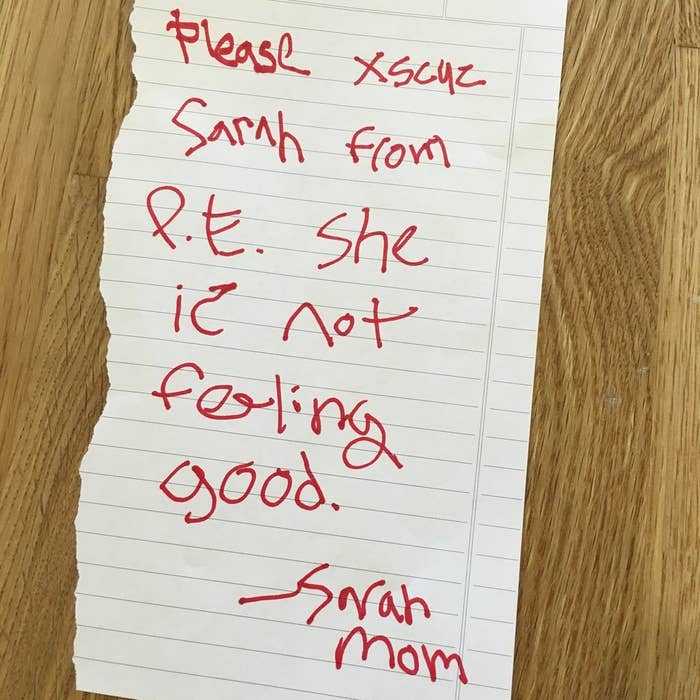 Please xscuz
Sarah from
P.E. she
iz not
feeling
good.
—Sarah
Mom